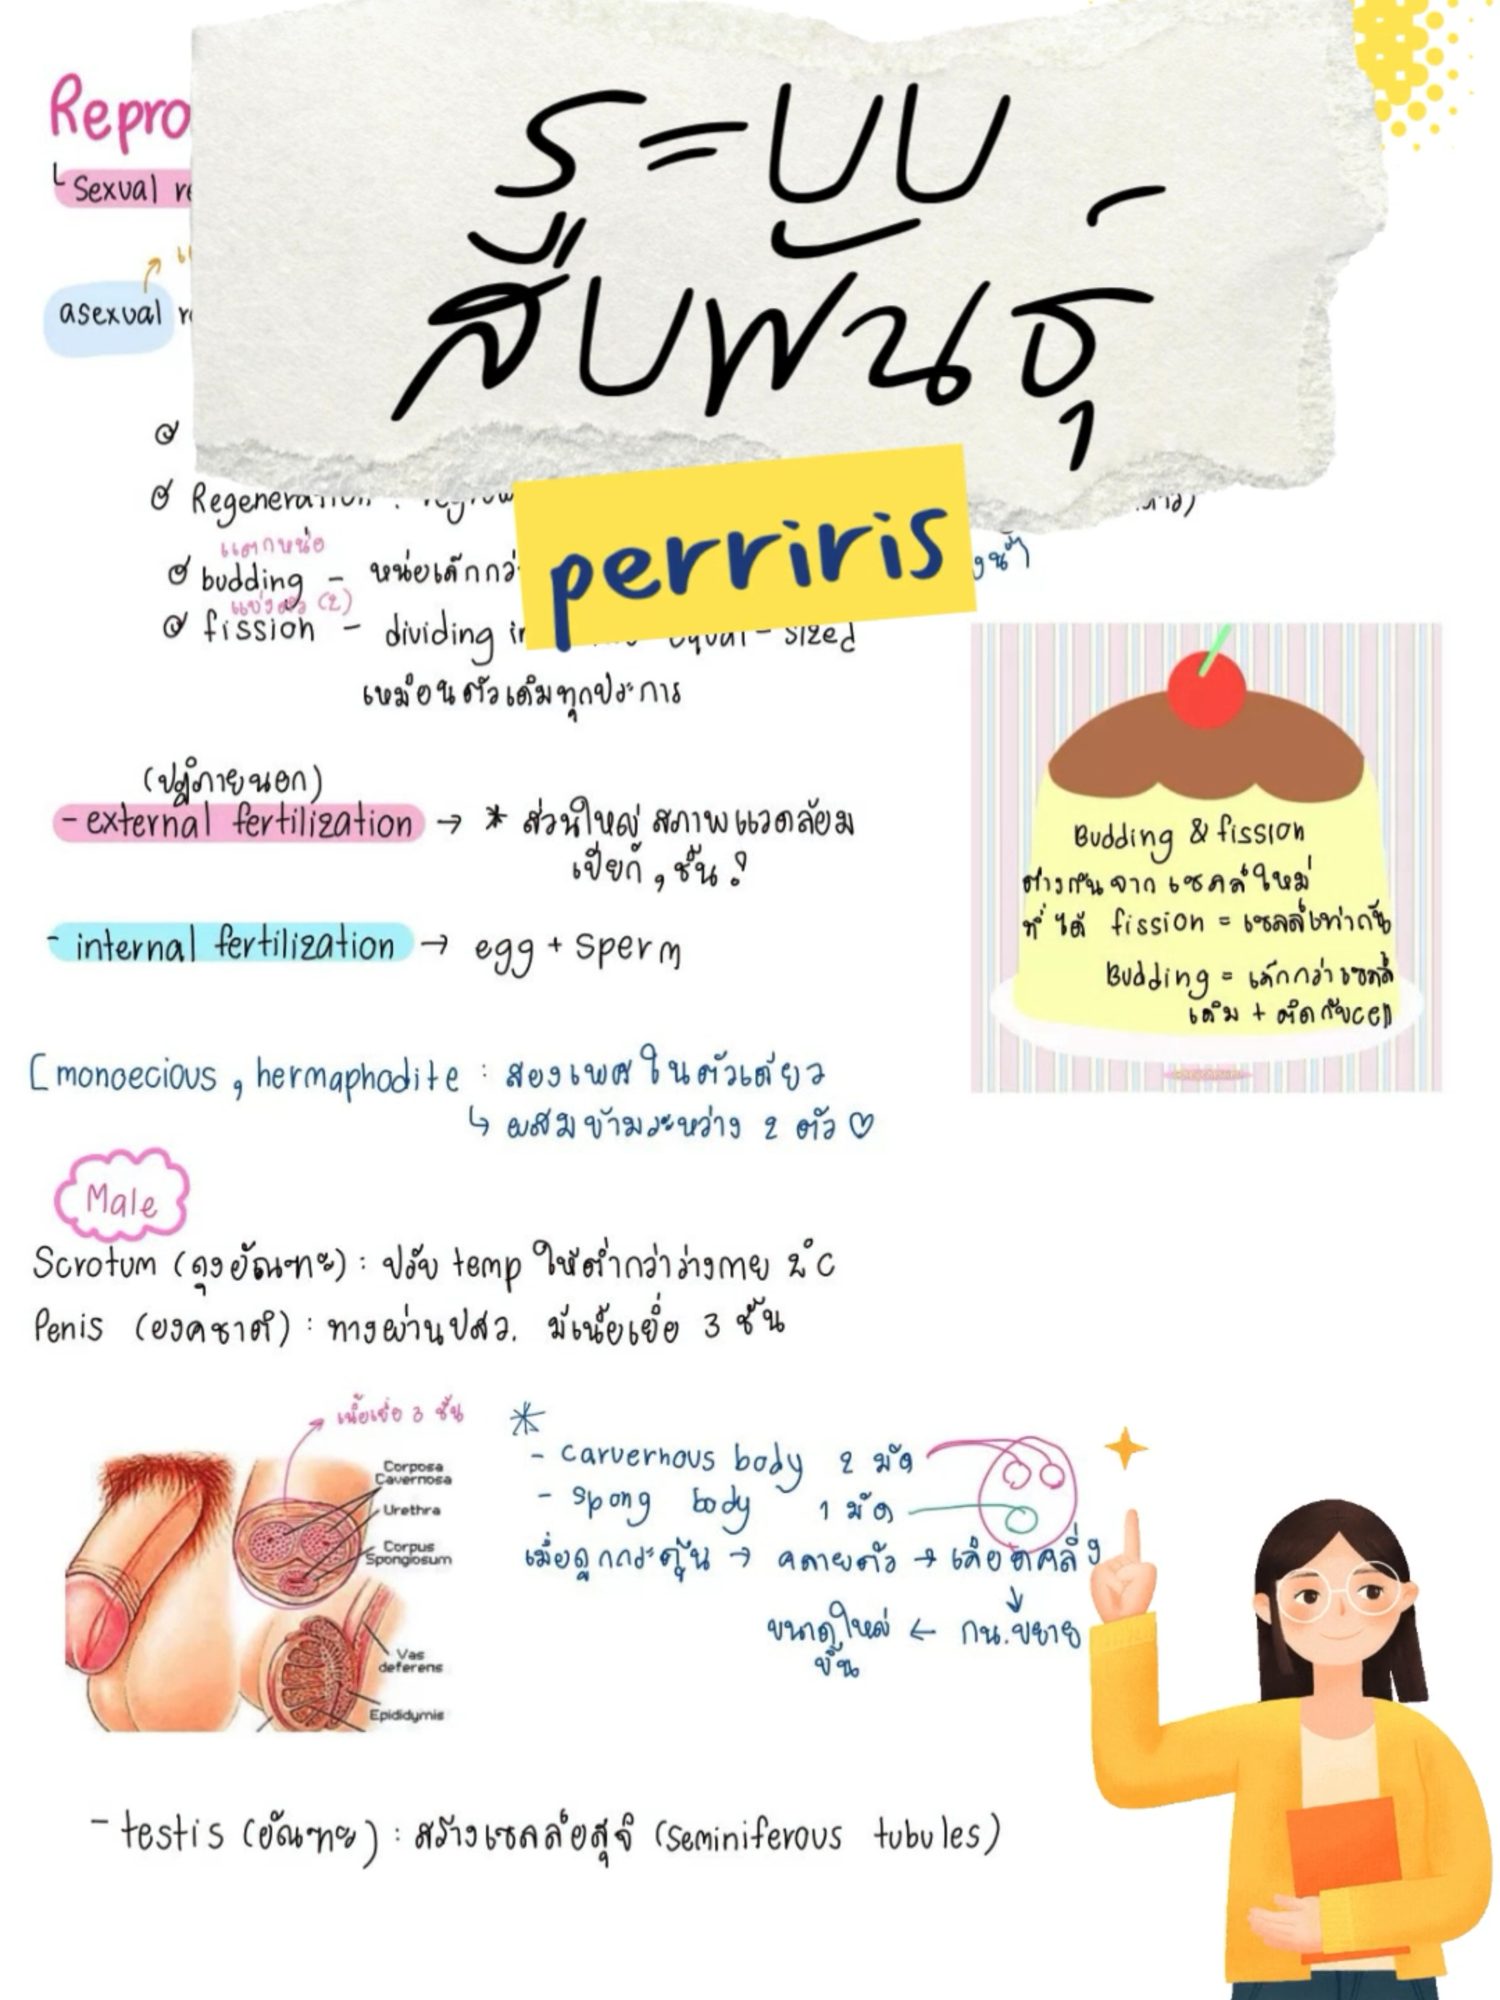 Repro
ระบบ
สืบพันธุ์
Sexual re
asexual r
Regeneration : regrow
perriris
แตกหน่อ
budding - หน่อเล็กกว่
แบ่งตัว (2)
fission - dividing in equal - sized
เหมือนตัวเดิมทุกประการ
(ปฏิภายนอก)
- external fertilization → * ส่วนใหญ่ สภาพแวดล้อม
เปียก, ชื้น !
- internal fertilization → egg + sperm
Budding & fission
ต่างกันจาก เซลล์ใหม่
ที่ได้ fission = เซลล์เท่ากัน
Budding = เล็กกว่าเซลล์
เดิม + ติดกับ cell
[monoecious, hermaphodite : สองเพศในตัวเดียว
↳ ผสมข้ามระหว่าง 2 ตัว ♡
Male
Scrotum (ถุงอัณฑะ) : ปรับ temp ให้ต่ำกว่าร่างกาย 2°C
Penis (องคชาติ) : ทางผ่านปสว. มีเนื้อเยื่อ 3 ชั้น
เนื้อเยื่อ 3 ชั้น
Corposa
Cavernosa
Urethra
Corpus
Spongiosum
Vas
deferens
Epididymis
*
- carvernous body 2 มัด
- spong body 1 มัด
เมื่อถูกกระตุ้น → คลายตัว → เลือดคลั่ง
ขนาดใหญ่ ← กน.ขยาย
ขึ้น
- testis (อัณฑะ) : สร้างเซลล์อสุจิ (seminiferous tubules)